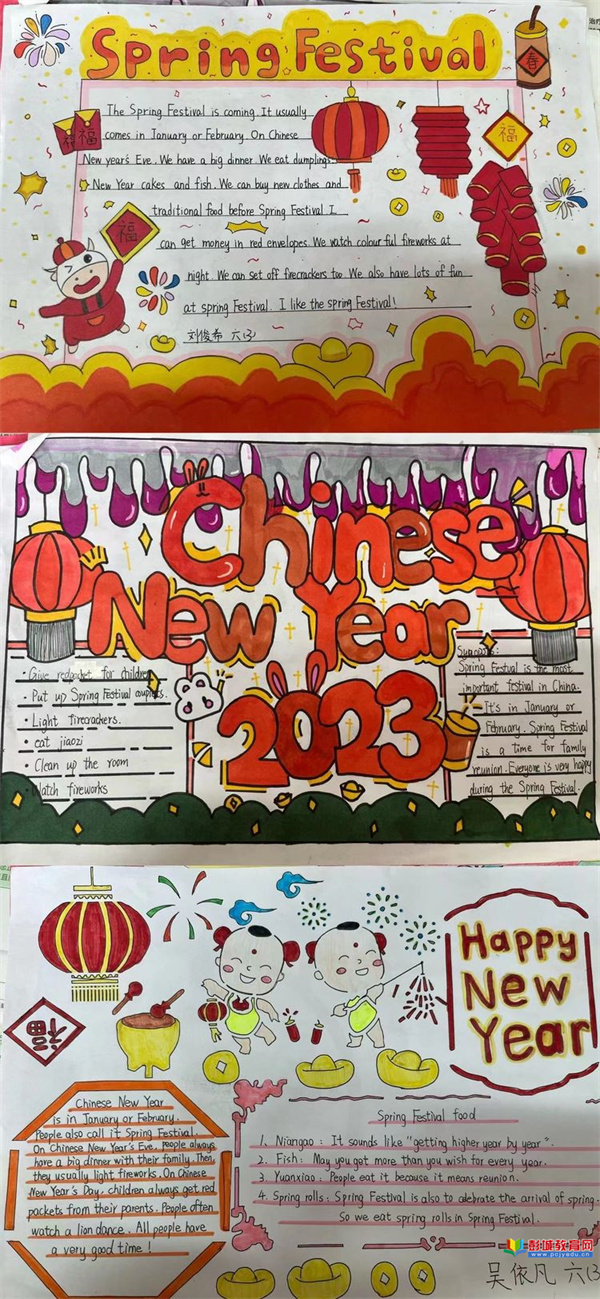 Spring Festival
春
福
福
福
The Spring Festival is coming. It usually
comes in January or February. On Chinese
New year's Eve. We have a big dinner. We eat dumplings.
New Year cakes and fish. We can buy new clothes and
traditional food before Spring Festival I
can get money in red envelopes. We watch colour ful fireworks at
night. We can set off firecrackers too. We also have lots of fun
at spring Festival. I like the spring Festival!
刘俊希 六(3)
Chinese
New Year
2023
· Give redpacket for children
· Put up Spring Festival couplets.
· Light firecrackers.
· eat jiaozi
· Clean up the room
Watch fireworks
Spring Festival is the most
important festival in China.
It's in January or
February. Spring Festival
is a time for family
reunion. Everyone is very happy
during the Spring Festival.
Happy
New
Year
福
Chinese New Year
is in January or February.
People also call it Spring Festival.
On Chinese New Year's Eve, people always
have a big dinner with their family. Then,
they usually light fireworks. On Chinese
New Year's Day, children always get red
packets from their parents. People often
watch a lion dance. All people have
a very good time!
Spring Festival food
1. Niangao: It sounds like "getting higher year by year".
2. Fish: May you get more than you wish for every year.
3. Yuanxiao: People eat it because it means reunion.
4. Spring rolls: Spring Festival is also to celebrate the arrival of spring.
So we eat spring rolls in Spring Festival.
吴依凡 六(3)
彭城教育网
www.pcjyedu.cn